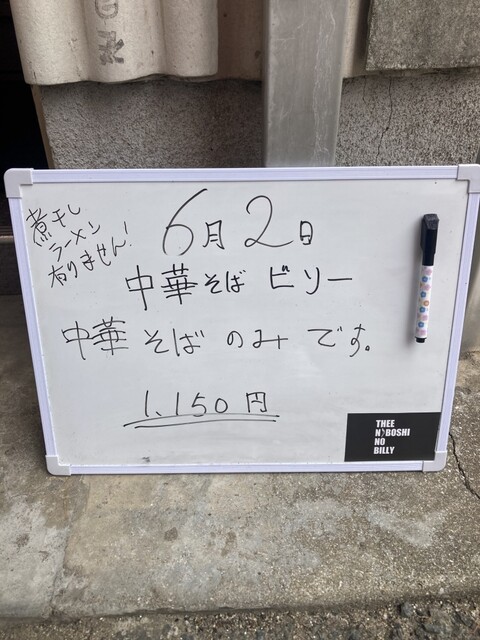 煮干し
ラーメン
有りません!
6月2日
中華そば ビリー
中華そばのみです。
1,150円
THEE
NIBOSHI
NO
BILLY